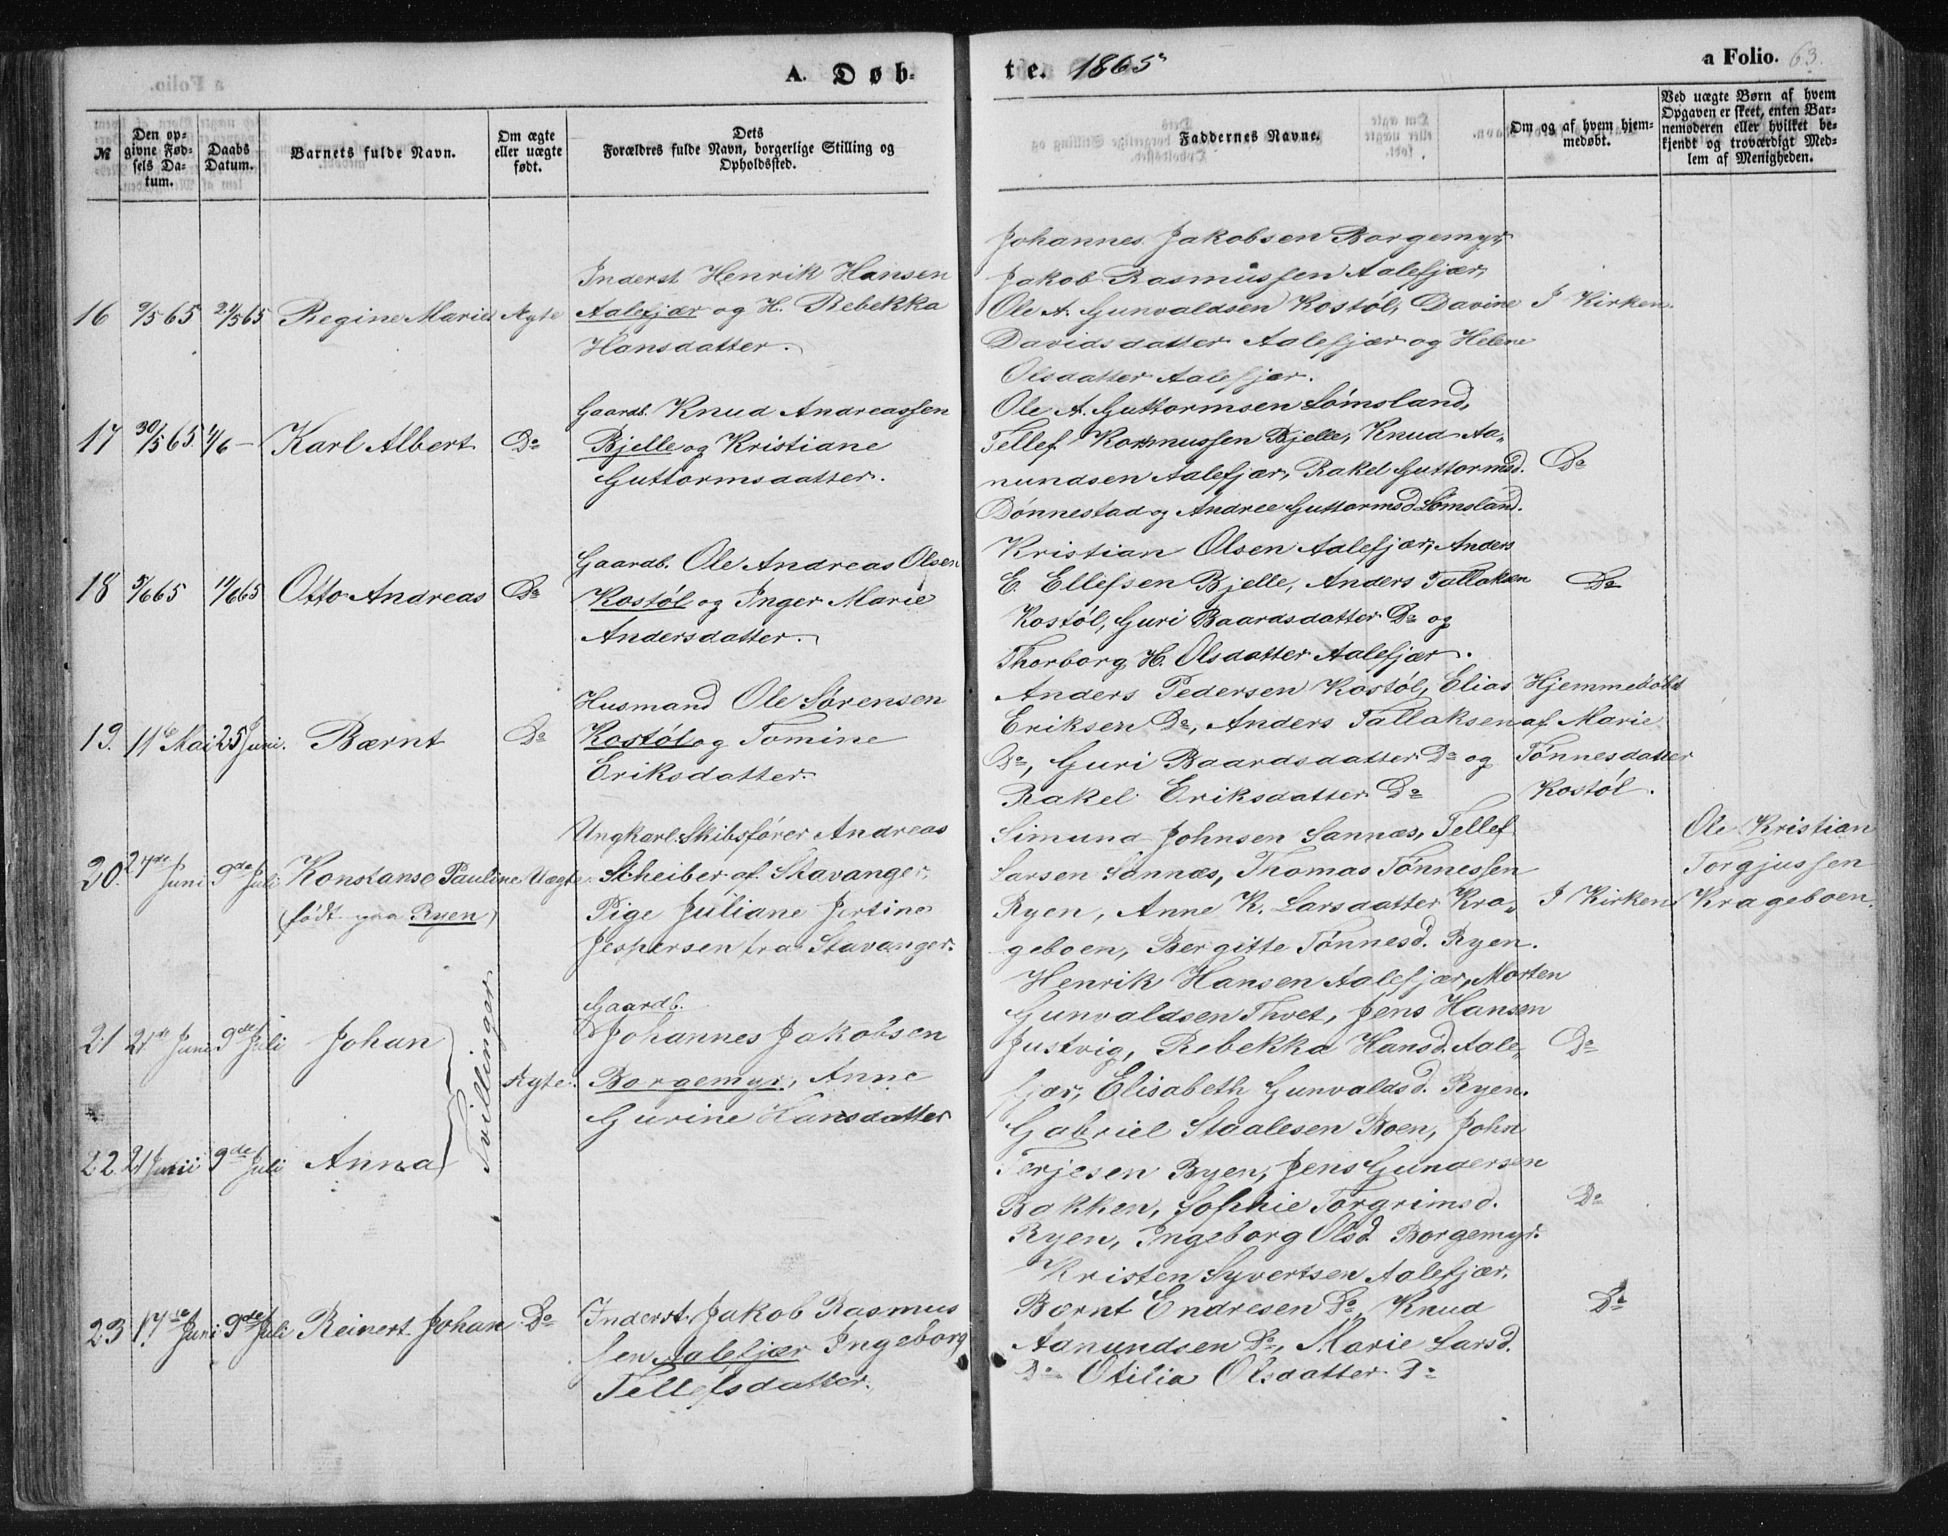 A. Døb-
te. 1865
a Folio. 63.
№
Den opgivne Fødsels Datum.
Daabs Datum.
Barnets fulde Navn.
Om ægte eller uægte født.
Dets Forældres fulde Navn, borgerlige Stilling og Opholdssted.
Faddernes Navne.
Om og af hvem hjemmedøbt.
Ved uægte Børn af hvem Opgaven er skeet, enten Barnemoderen eller hvilket bekjendt og troværdigt Medlem af Menigheden.
16 9/5 65 21/5 65 Regine Marie Ægte
Inderst Henrik Hansen
Aalefjær og H. Rebekka
Hansdatter.
Johannes Jakobsen Borgemyr,
Jakob Rasmussen Aalefjær,
Ole A. Gunvaldsen Kostøl, Davine
Davidsdatter Aalefjær og Helene
Olsdatter Aalefjær.
I Kirken.
17 30/5 65 4/6 — Karl Albert Do
Gaardb. Knud Andreassen
Bjelle og Kristiane
Guttormsdatter.
Ole A. Guttormsen Lømsland,
Tellef Rasmussen Bjelle, Knud Aa-
nundsen Aalefjær, Rakel Guttormsd.
Dønnestad og Andree Guttormsd Lømsland.
Do
18 5/6 65 11/6 65 Otto Andreas Do
Gaardb. Ole Andreas Olsen
Kostøl og Inger Marie
Andersdatter.
Kristian Olsen Aalefjær, Anders
E. Ellefsen Bjelle, Anders Tallaksen
Kostøl, Guri Baardsdatter Do og
Thorborg H. Olsdatter Aalefjær.
Do
19. 11te Mai 25 Juni. Bærnt Do
Husmand Ole Sørensen
Kostøl og Tomine
Eriksdatter.
Anders Pedersen Kostøl, Elias
Eriksen Do, Anders Tallaksen
Do, Guri Baardsdatter Do og
Rakel Eriksdatter Do
Hjemmedøbt
af Marie
Tønnesdatter
Kostøl.
20. 27de Juni 9de Juli Konstanse Pauline Uægte
(født paa Ryen)
Ungkarl Skibsfører Andreas
Scheiber af Stavanger,
Pige Juliane Jertine
Jespersen fra Stavanger.
Simund Johnsen Sannæs, Tellef
Larsen Sannæs, Thomas Tønnessen
Ryen, Anne K. Larsdatter Kra-
geboen, Bergitte Tønnesd. Ryen.
I Kirken
Ole Kristian
Torgjussen
Krageboen.
21 21de Juni 9de Juli Johan
Tvillinger
Ægte.
Gaardb.
Johannes Jakobsen
Borgemyr, Anne
Gurine Hansdatter
Henrik Hansen Aalefjær, Morten
Gunvaldsen Thvet, Jens Hansen
Justvig, Rebekka Hansd. Aale-
fjær, Elisabeth Gunvaldsd. Ryen.
Do
22. 21 Juni 9de Juli Anna
Gabriel Staalesen Boen, John
Terjesen Ryen, Jens Gundersen
Bakken, Sophie Torgrimsd.
Ryen, Ingeborg Olsd. Borgemyr.
Do
23 17de Juni 9de Juli Reinert Johan Do
Inderst. Jakob Rasmus
sen Aalefjær Ingeborg
Tellefsdatter.
Kristen Syvertsen Aalefjær,
Bærnt Endresen Do, Knud
Aanundsen Do, Marie Larsd.
Do Otilia Olsdatter Do
Do